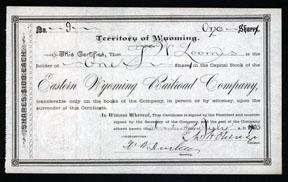 No. 9 One Shares
Territory of Wyoming.
This Certifies, That Loomis is the
holder of One Shares in the Capital Stock of the
Eastern Wyoming Railroad Company,
transferable only on the books of the Company, in person or by attorney, upon the
surrender of this Certificate.
In Witness Whereof, This Certificate is signed by the President and
signed by the Secretary of the Company, and the seal of the Company
SHARES $100 EACH